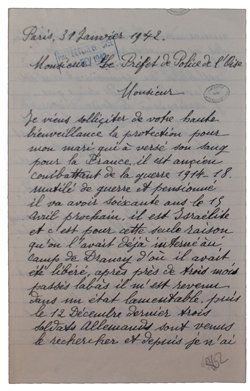 Paris, 31 Janvier 1942.
Monsieur Le Préfet de Police de l'Oise
Monsieur
Je viens solliciter de votre haute
bienveillance la protection pour
mon mari qui a versé son sang
pour la France, il est ancien
combattant de la guerre 1914-18
mutilé de guerre et pensionné
il va avoir soixante ans le 15
avril prochain, il est Israélite
et c'est pour cette seule raison
qu'on l'avait déjà interné au
camp de Drancy d'où il avait
été libéré, après près de trois mois
passés labas il m'est revenu
dans un état lamentable. puis
le 12 Décembre dernier trois
soldats Allemands sont venus
le rechercher et depuis je n'ai